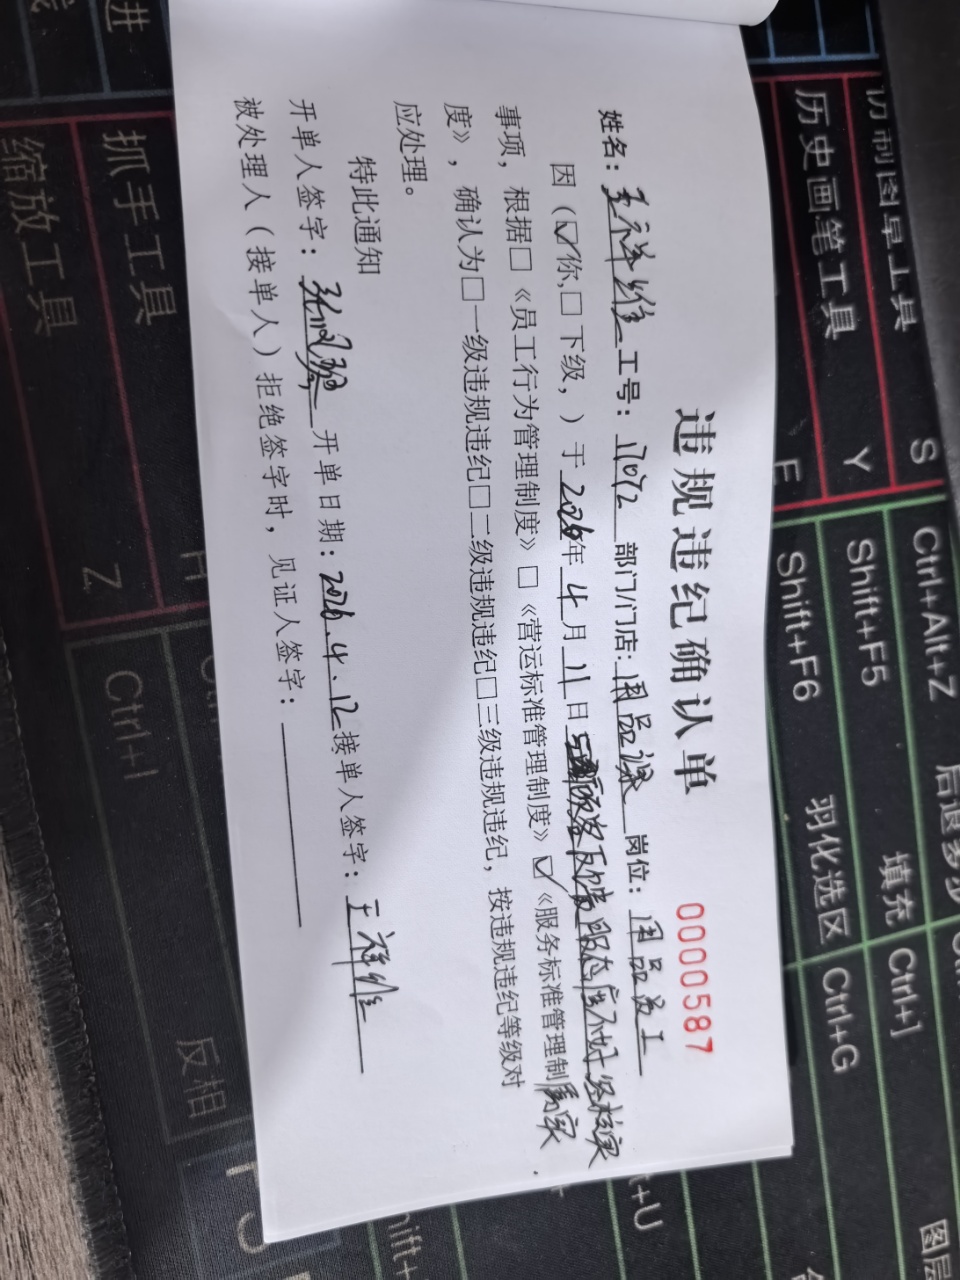 违规违纪确认单
0000587
姓名：王祥维 工号：17072 部门/门店：用品课 岗位：用品员工
因（☑你,□下级，）于2026年4月11日 顾客反馈服务态度不好经核实属实
事项，根据□《员工行为管理制度》□《营运标准管理制度》☑《服务标准管理制
度》，确认为□一级违规违纪□二级违规违纪□三级违规违纪，按违规违纪等级对
应处理。
特此通知
开单人签字： 开单日期：2026.4.12 接单人签字：王祥维
被处理人（接单人）拒绝签字时，见证人签字：
仿制图章工具 S
历史画笔工具 Y
E
抓手工具
缩放工具
Z
Ctrl+Alt+Z
Shift+F5
Shift+F6
填充
羽化选区
Ctrl+J
Ctrl+G
Ctrl+I
反相
图层